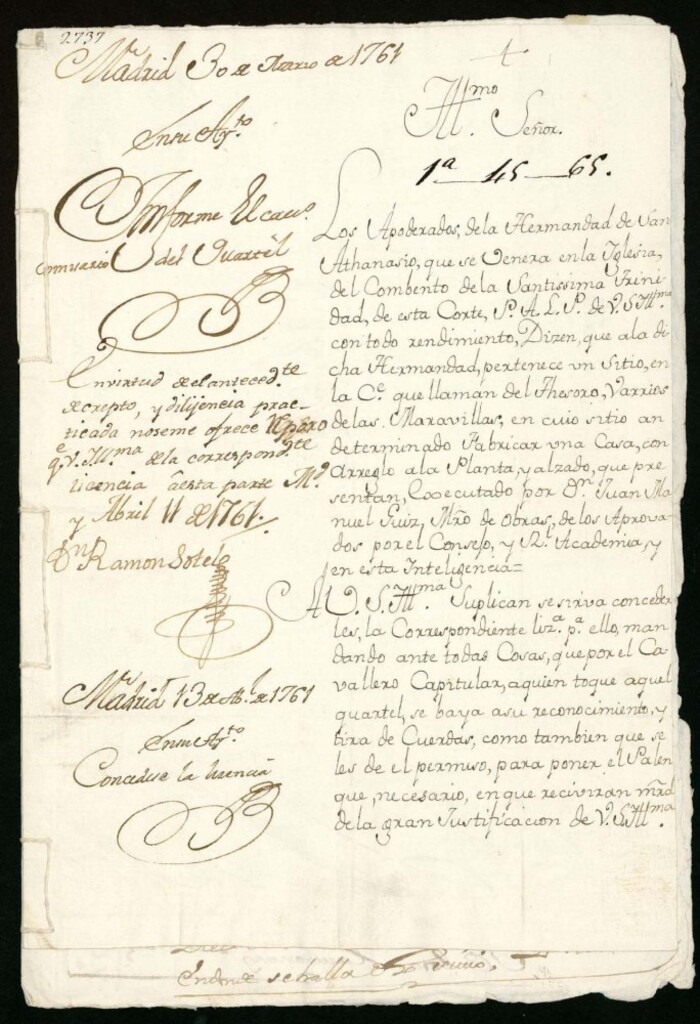 2737
Madrid 30 de Marzo de 1761
En su Ay.to
Informe El cav.o
Commisario del Quartèl
En virtud de el anteced.te
decrepto, y dilijencia prac-
ticada no se me ofrece Reparo
q.e V. S. Ill.ma de la correspond.te
licencia à esta parte M.d
y Abril 11 de 1761.
D.n Ramon Sotelo
Madrid 13 de Ab.l de 1761
En su Ay.to
Concedese la licencia
Ill.mo
Señor.
1ª 45 65.
Los Apoderados, de la Hermandad de San
Athanasio, que se Venera en la Iglesia,
del Combento de la Santissima Trini
dad, de esta Corte, P. A. L. P. de V. S. Ill.ma
con todo rendimiento, Dizen, que a la di
cha Hermandad, pertenece vn Sitio, en
la C.e que llamán del Thesoro, Varrios
de las Maravillas, en cuio sitio an
determinado Fabricar vna Casa, con
Arreglo a la Planta, y alzado, que pre
sentan, Exxecutado por D.n Juan Ma
nuel Guiz, Mro de Obras, de los Aprova
dos por el Consejo, y R.l Academia, y
en esta Inteligencia=
A V. S. Ill.ma Suplican se sirva conceder
les, la Correspondiente liz.ª p.ª ello, man
dando ante todas Cosas, que por el Ca
vallero Capitular, a quien toque aquel
quartel, se baya a su reconocimiento, y
tira de Cuerdas, como tambien que se
les de el permiso, para poner el Palen
que, necesario, en que reciviran mrd
de la gran Justificacion de V. S. Ill.ma
se halla